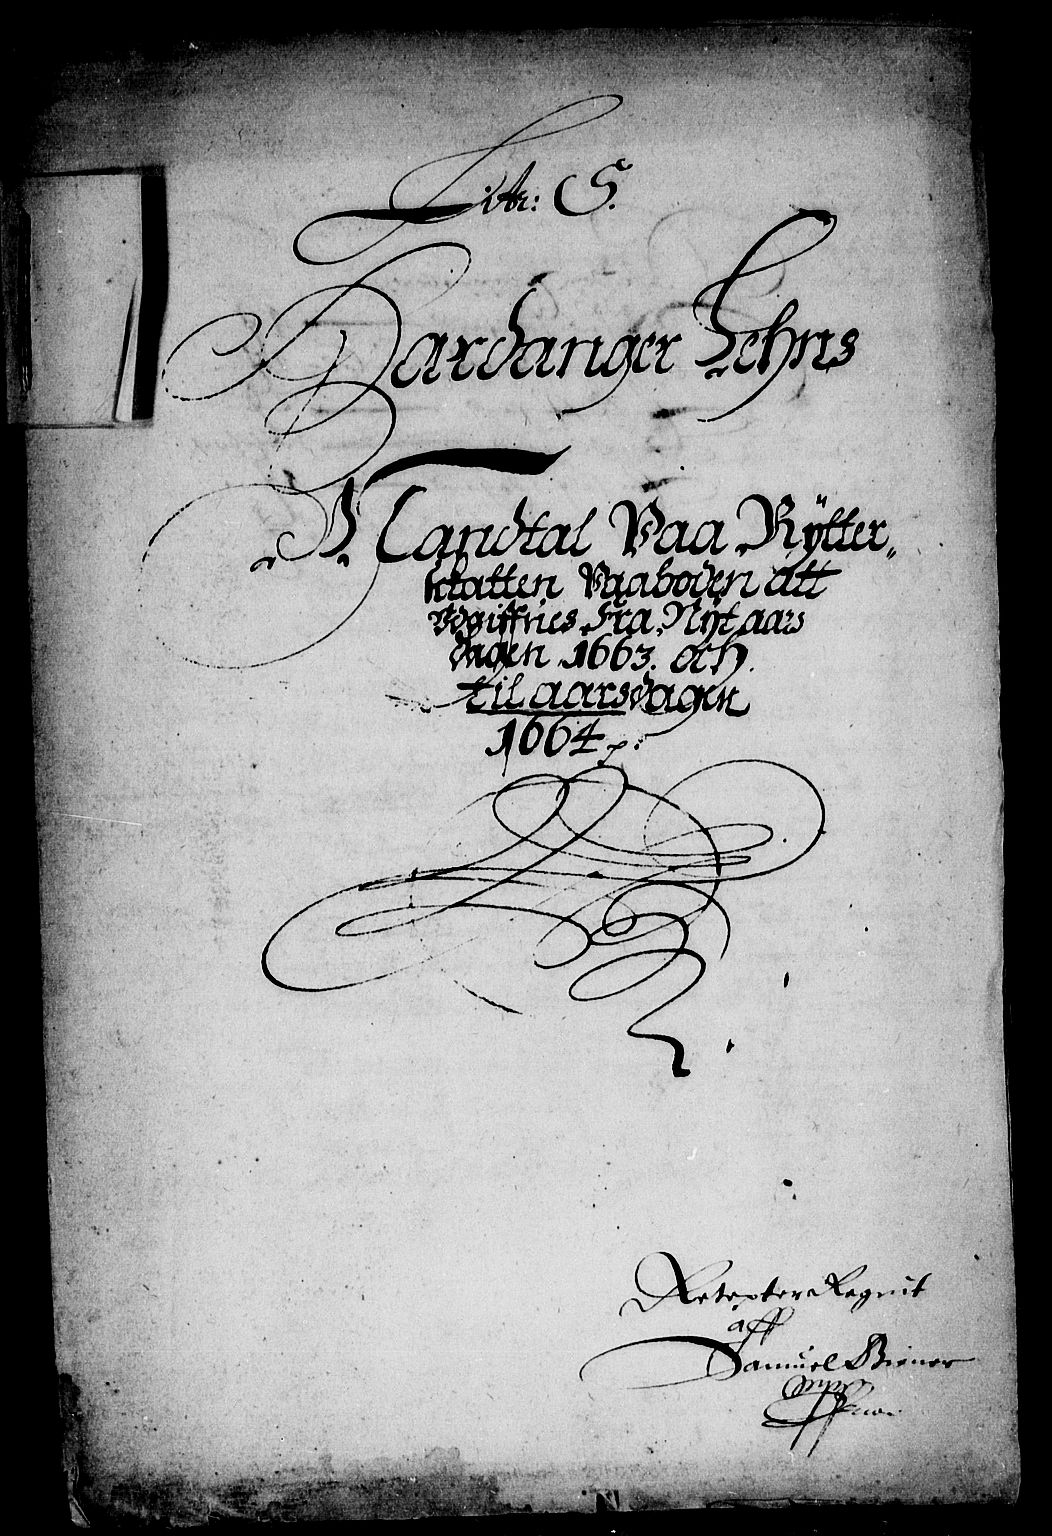 Litr: S.
Hardanger Lehns
Mandtal Paa Rÿtter„
skatten Paaboden att
Vdgiffues Fra Nÿt aars
dagen 1663. och
til aarsdagen
1664 p:
Retepter Regnit
aff
Samuel Biener